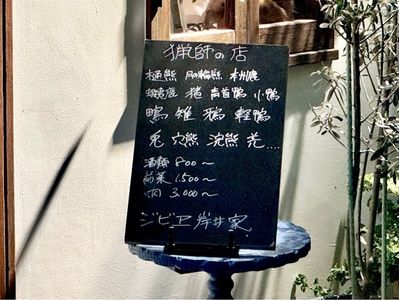 猟師の店
羆熊 月の輪熊 本州鹿
蝦夷鹿 猪 青首鴨 小鴨
鴨 雉 鵝 軽鴨
兎 穴熊 浣熊 羌....
酒類 800～
前菜 1.500～
肉 3.000～
ジビエ 岸井家